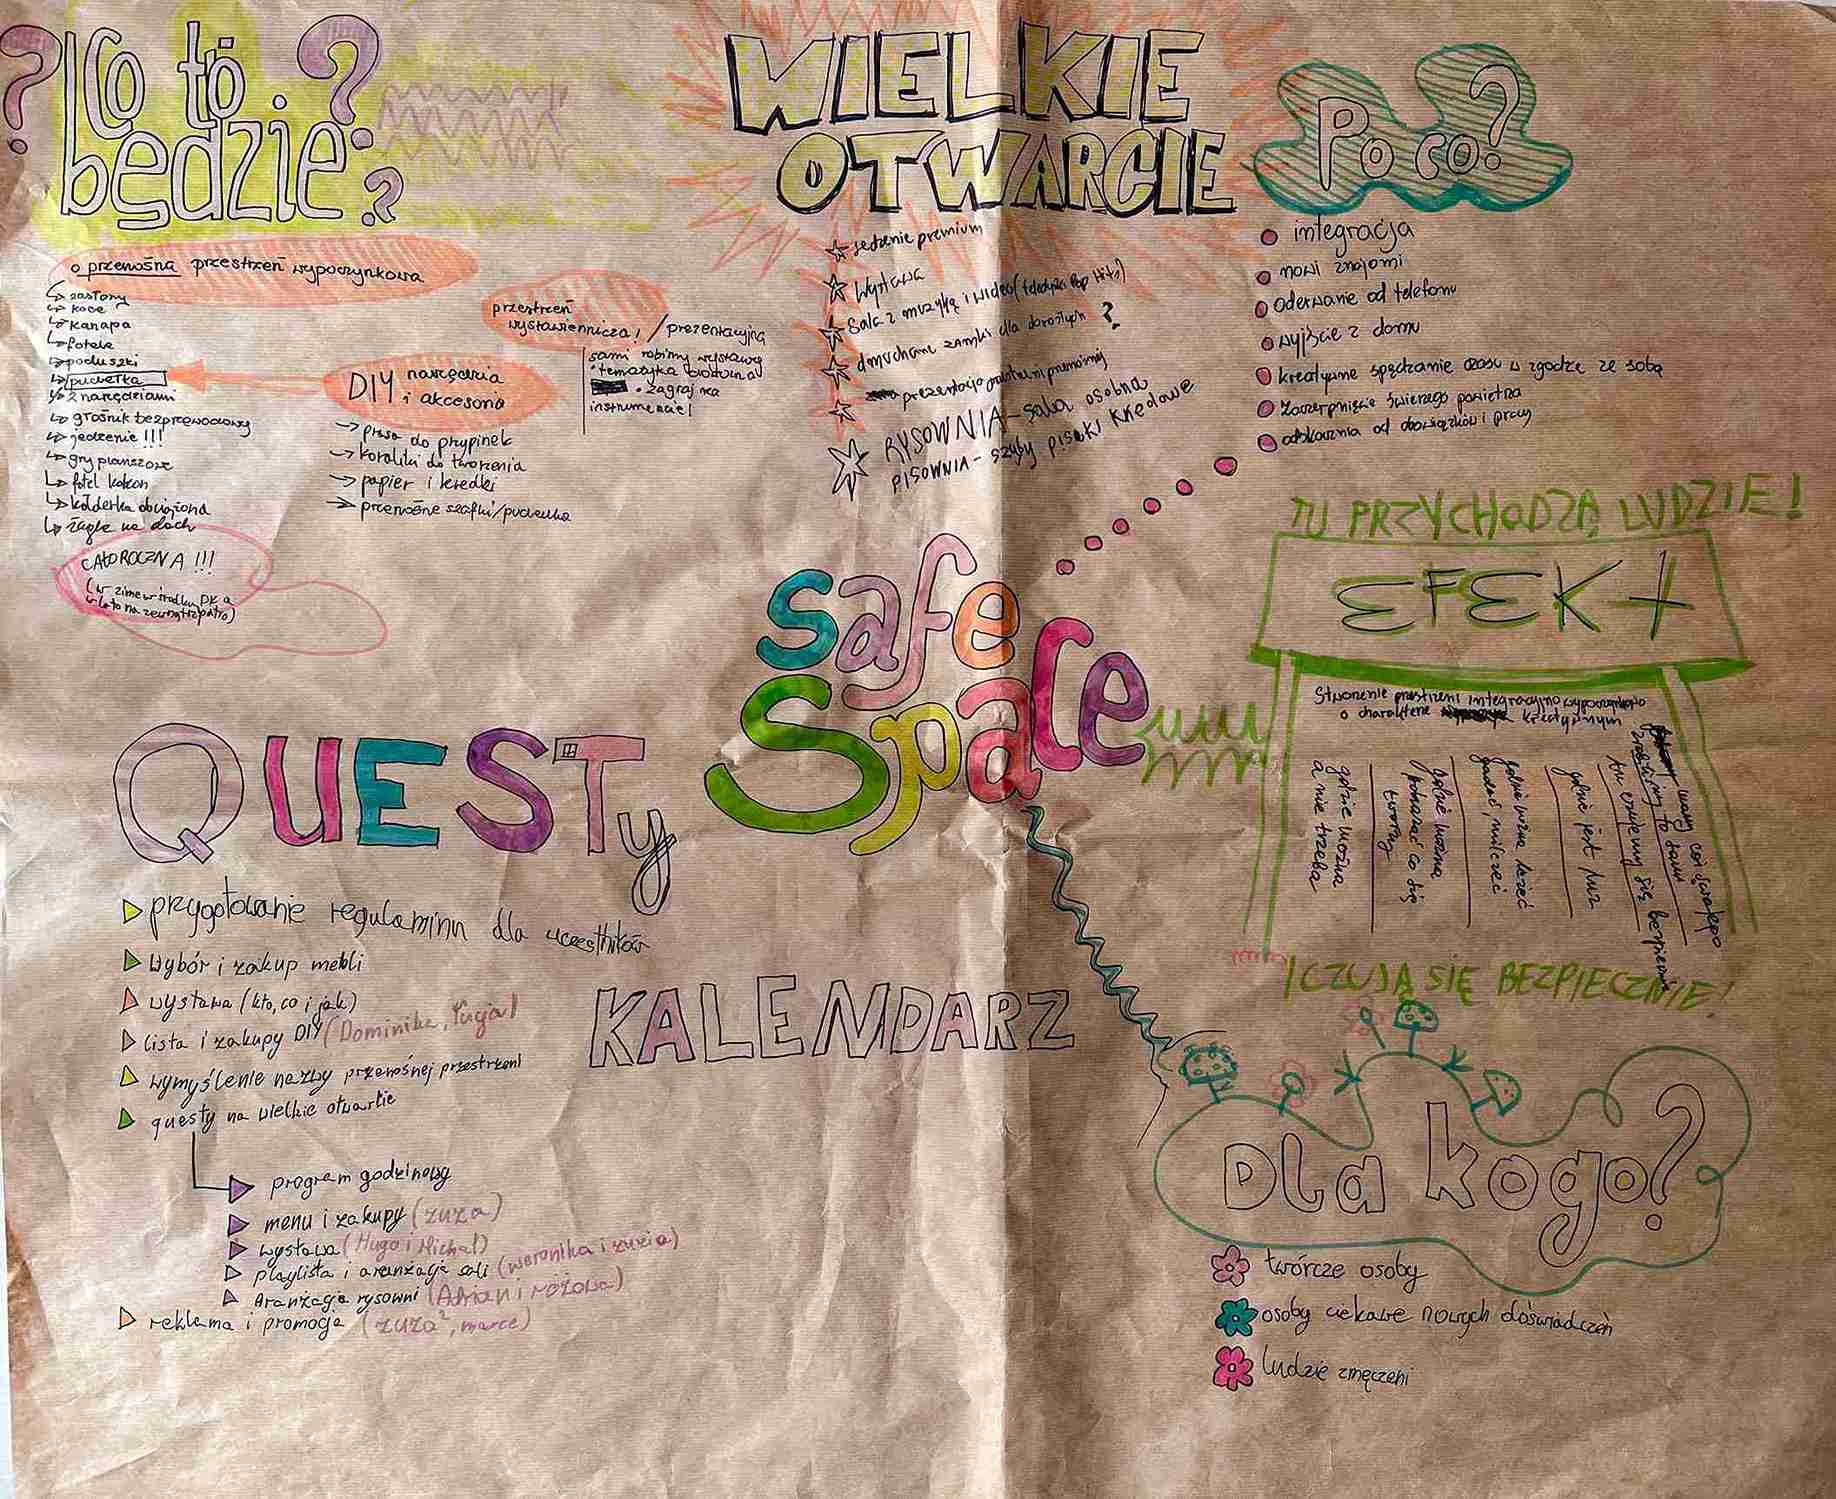 Co to
będzie?
o przenośna przestrzeń wypoczynkowa
zasłony
koce
kanapa
fotele
poduszki
pudełka
z narzędziami
głośnik bezprzewodowy
jedzenie !!!
gry planszowe
fotel kokon
kołderka obciążona
żagle na dach
CAŁOROCZNA !!!
(w zimie w środku DK a
w lato na zewnątrz patio)
przestrzeń
wystawiennicza! / prezentacyjna
sami robimy wystawę
• tematyka
• zagraj na
instrumencie!
DIY narzędzia
i akcesoria
prasa do przypinek
koraliki do tworzenia
papier i kredki
przenośne szafki/pudełka
WIELKIE
OTWARCIE
jedzenie premium
Wystawa
Sala z muzyką i wideo (teledyski Pop Hits)
dmuchane zamki dla dorosłych ?
prezentacja
RYSOWNIA - sala osobna
PISOWNIA - szyby pisaki kredowe
Po co?
integracja
nowi znajomi
oderwanie od telefonu
wyjście z domu
kreatywne spędzanie czasu w zgodzie ze sobą
zaczerpnięcie świeżego powietrza
odskocznia od obowiązków i pracy
safe
space
TU PRZYCHODZĄ LUDZIE!
EFEKT
Stworzenie przestrzeni integracyjno wypoczynkowo
o charakterze kreatywnym
gdzie można
a nie trzeba
gdzie można
pokazać co się
tworzy
gdzie można leżeć
gadać, milczeć
gdzie jest luz
mamy coś swojego
zrobiliśmy to sami
tu czujemy się bezpiecznie
I CZUJĄ SIĘ BEZPIECZNIE!
QUESTy
przygotowanie regulaminu dla uczestników
Wybór i zakup mebli
wystawa (kto, co i jak)
Lista i zakupy DIY (Dominika, Łucja)
wymyślenie nazwy przenośnej przestrzeni
questy na wielkie otwarcie
program godzinowy
menu i zakupy (zuza)
wystawa (Hugo i Michał)
playlista i aranżacja sali (weronika i zuzia)
Aranżacja rysowni (Adrian i różowa)
reklama i promocja (zuza², marce)
KALENDARZ
Dla kogo?
twórcze osoby
osoby ciekawe nowych doświadczeń
Ludzie zmęczeni